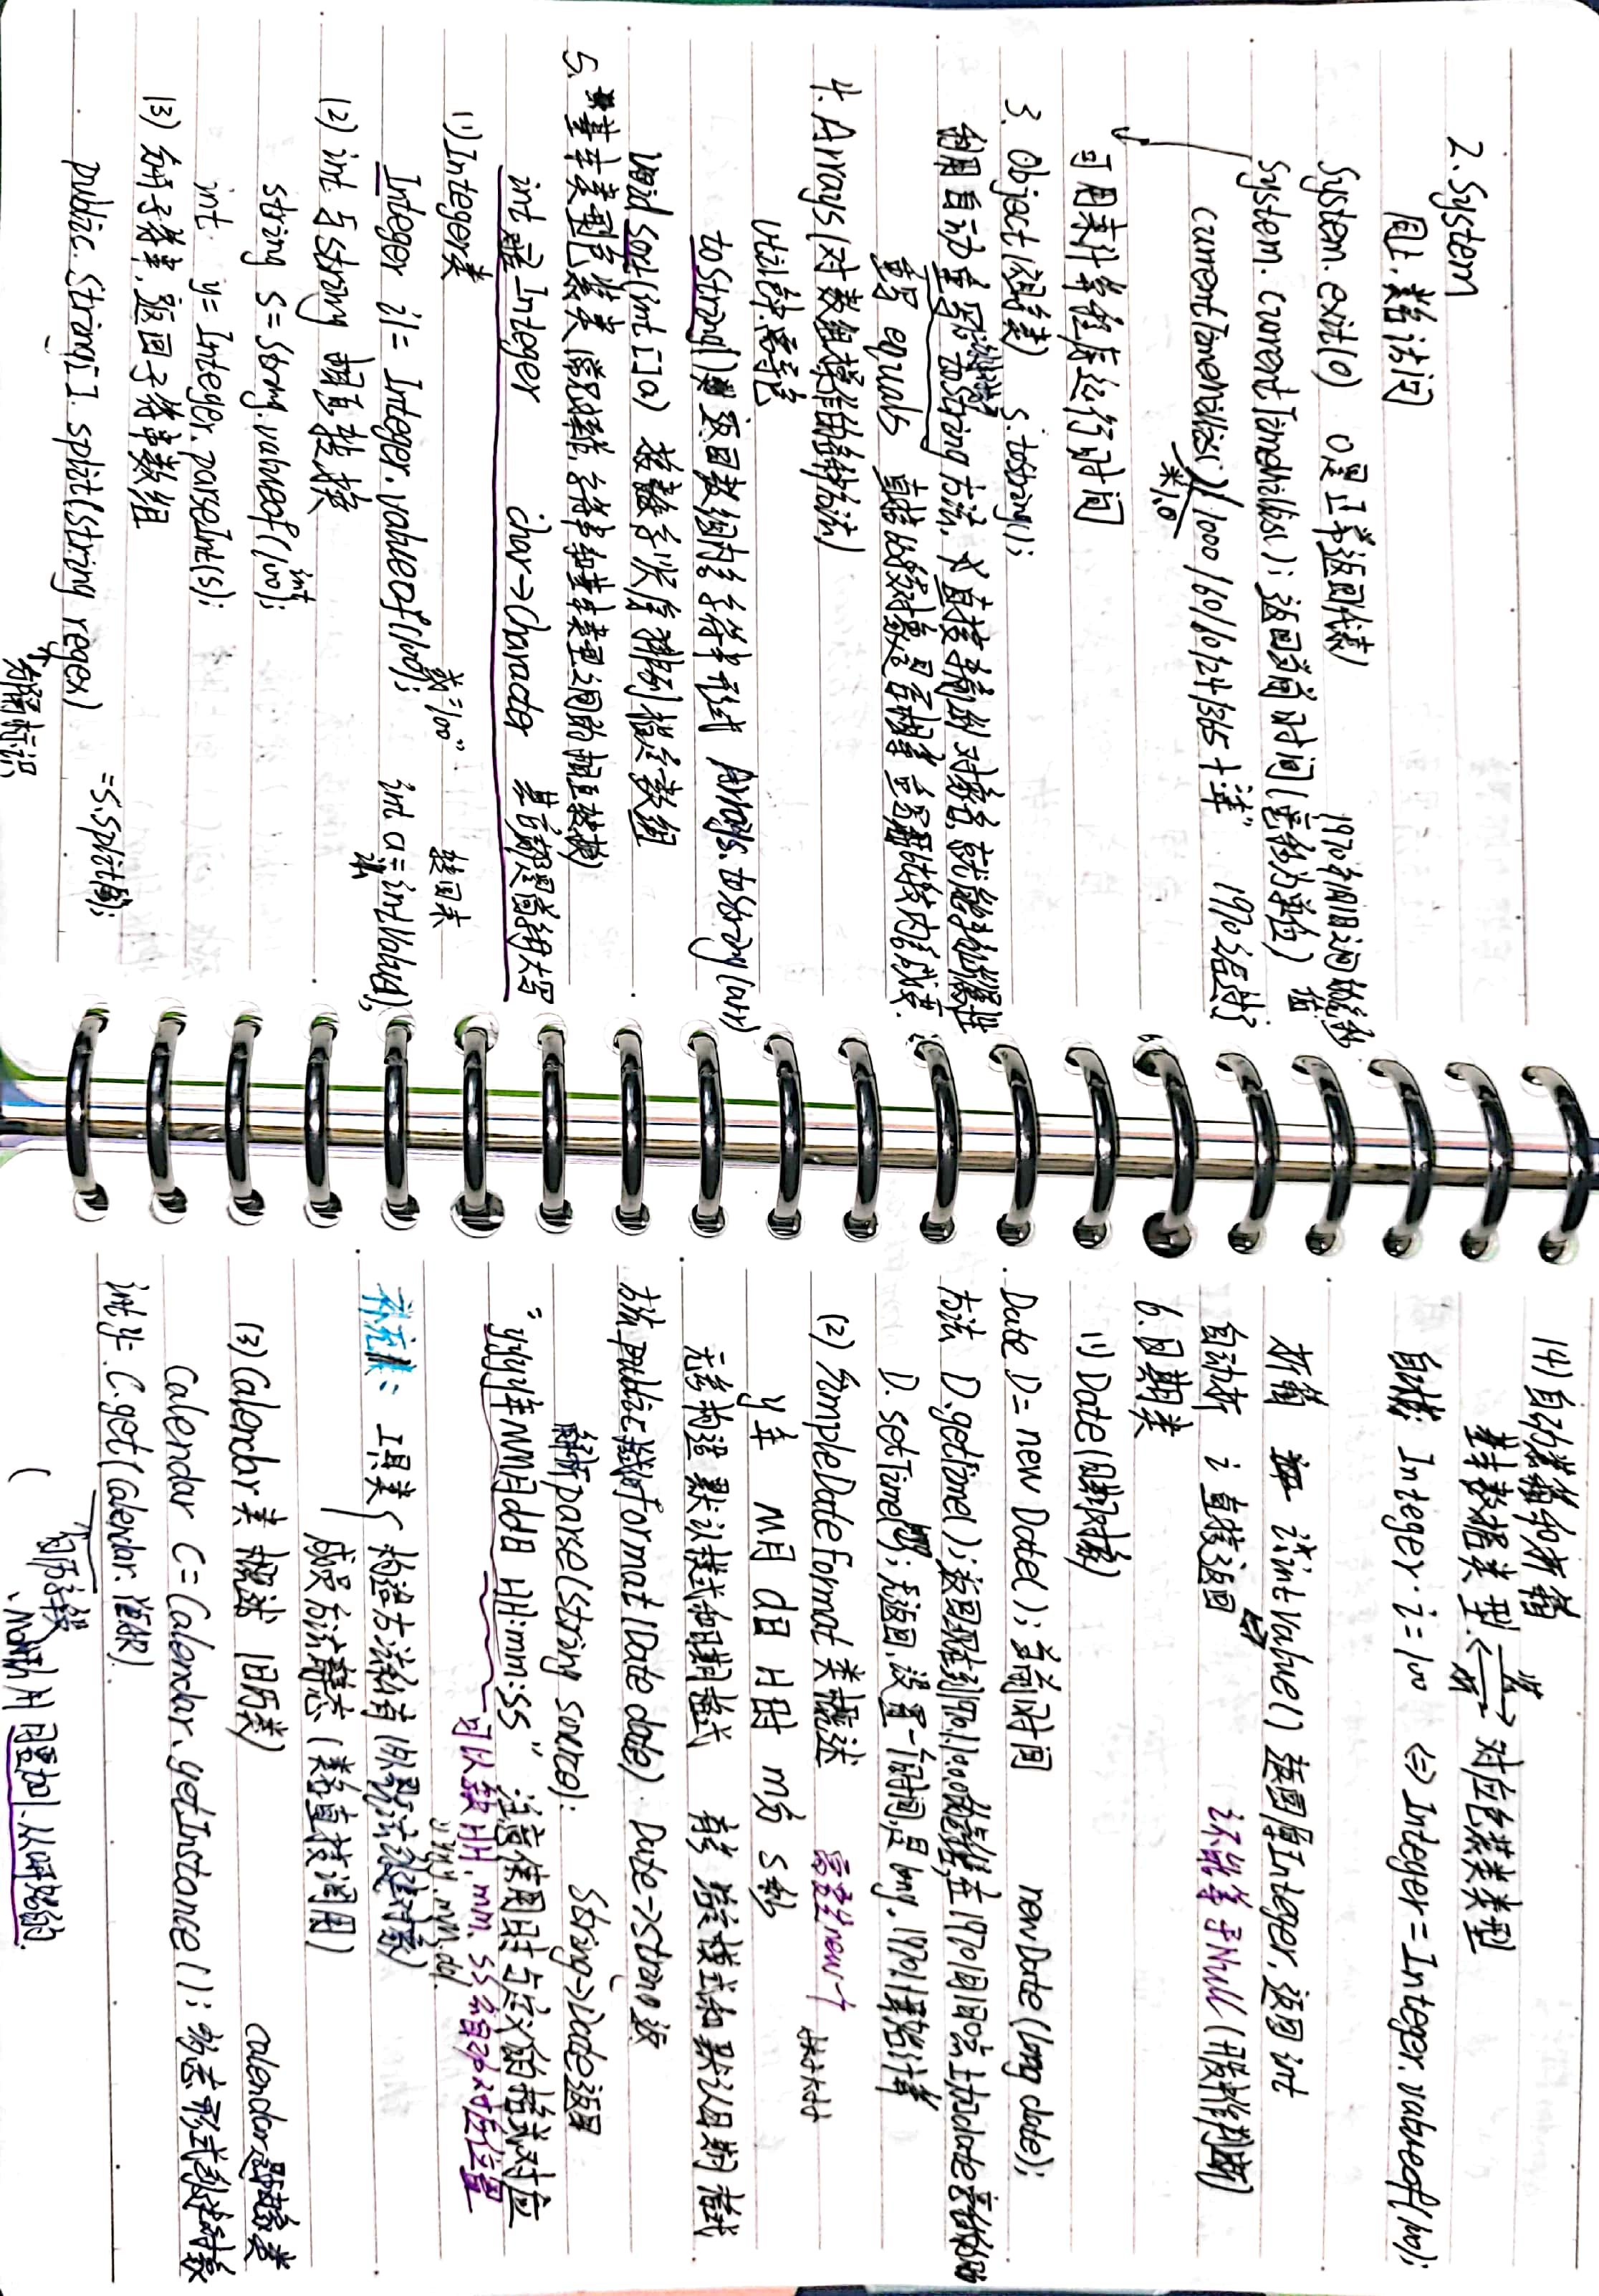 2. System
同上,类名访问
System.exit(0) 0是正常返回(代表)
1970年1月1日之间的毫秒值
System.currentTimeMillis(); 返回当前时间(毫秒为单位)
currentTimeMillis()/1000/60/60/24/365+"年" 1970之后过了
*1.0
可用来计算程序运行时间
3. Object(祖宗类) s.toString();
利用自动重写toString方法,直接输出对象名,就能输出属性
重写 equals 直接比较对象是否相等 重写用比较内容成员.
4. Arrays(对数组操作的各种方法)
util包中.需导包
toString() 返回数组内容字符串形式 Arrays.toString(arr)
void sort(int []a) 按数字顺序排列指定数组
5. 基本类型包装类(常见操作,字符串和基本类型之间的相互转换)
int→Integer char→Character 其它都是首字母大写
(1)Integer类
或"100" 转回来
Integer i1= Integer.valueof(100); int a=i1.intValue();
(2) int 与string 相互转换
int
string s=String.valueof(100);
int y=Integer.parseInt(s);
(3) 分开子符串,返回子符串数组
public String[] split(String regex) =s.split();
分隔标识
(4)自动装箱和折箱
基本数据类型 装 折 对应包装类类型
自动装 Integer i=100 ⇔ Integer=Integer.valueof(100);
折箱 i.intValue() 返回原Integer,返回int
自动折 i 直接返回 i不能等于Null(开发中作判断)
6.日期类
(1) Date(日期对象)
Date D= new Date();当前时间 new Date(long date);
方法 D.getTime();返回现在到1970.1.1 0:0:0的毫秒值,在1970 1月1日0点上加date毫秒的时间
D.setTime(long);无返回,设置一个时间,是long,1970.1.1开始计算
(2) SimpleDateFormat类概述 需要先new个
y年 M月 d日 H时 m分 s秒
无参构造 默认模式和日期格式 有参 给定模式和默认日期格式
方法 public 格式化format(Date date) Date→string返
解析parse(String source): String→Date返回
"yyyy年MM月dd日 HH:mm:ss" 注意使用时与定义的格式对应
可以缺HH,mm,ss会自动对应位置
yyyy.mm.dd.
补充: 工具类{ 构造方法私有(外界无法创建对象)
成员方法静态(类名直接调用)
(3)Calendar类概述(日历类) calendar是抽象类
Calendar C=Calendar.getInstance(); 多态形式创建对象
int y= C.get(Calendar.YEAR).
日历字段
( Month 月 月要加1,从0开始的.